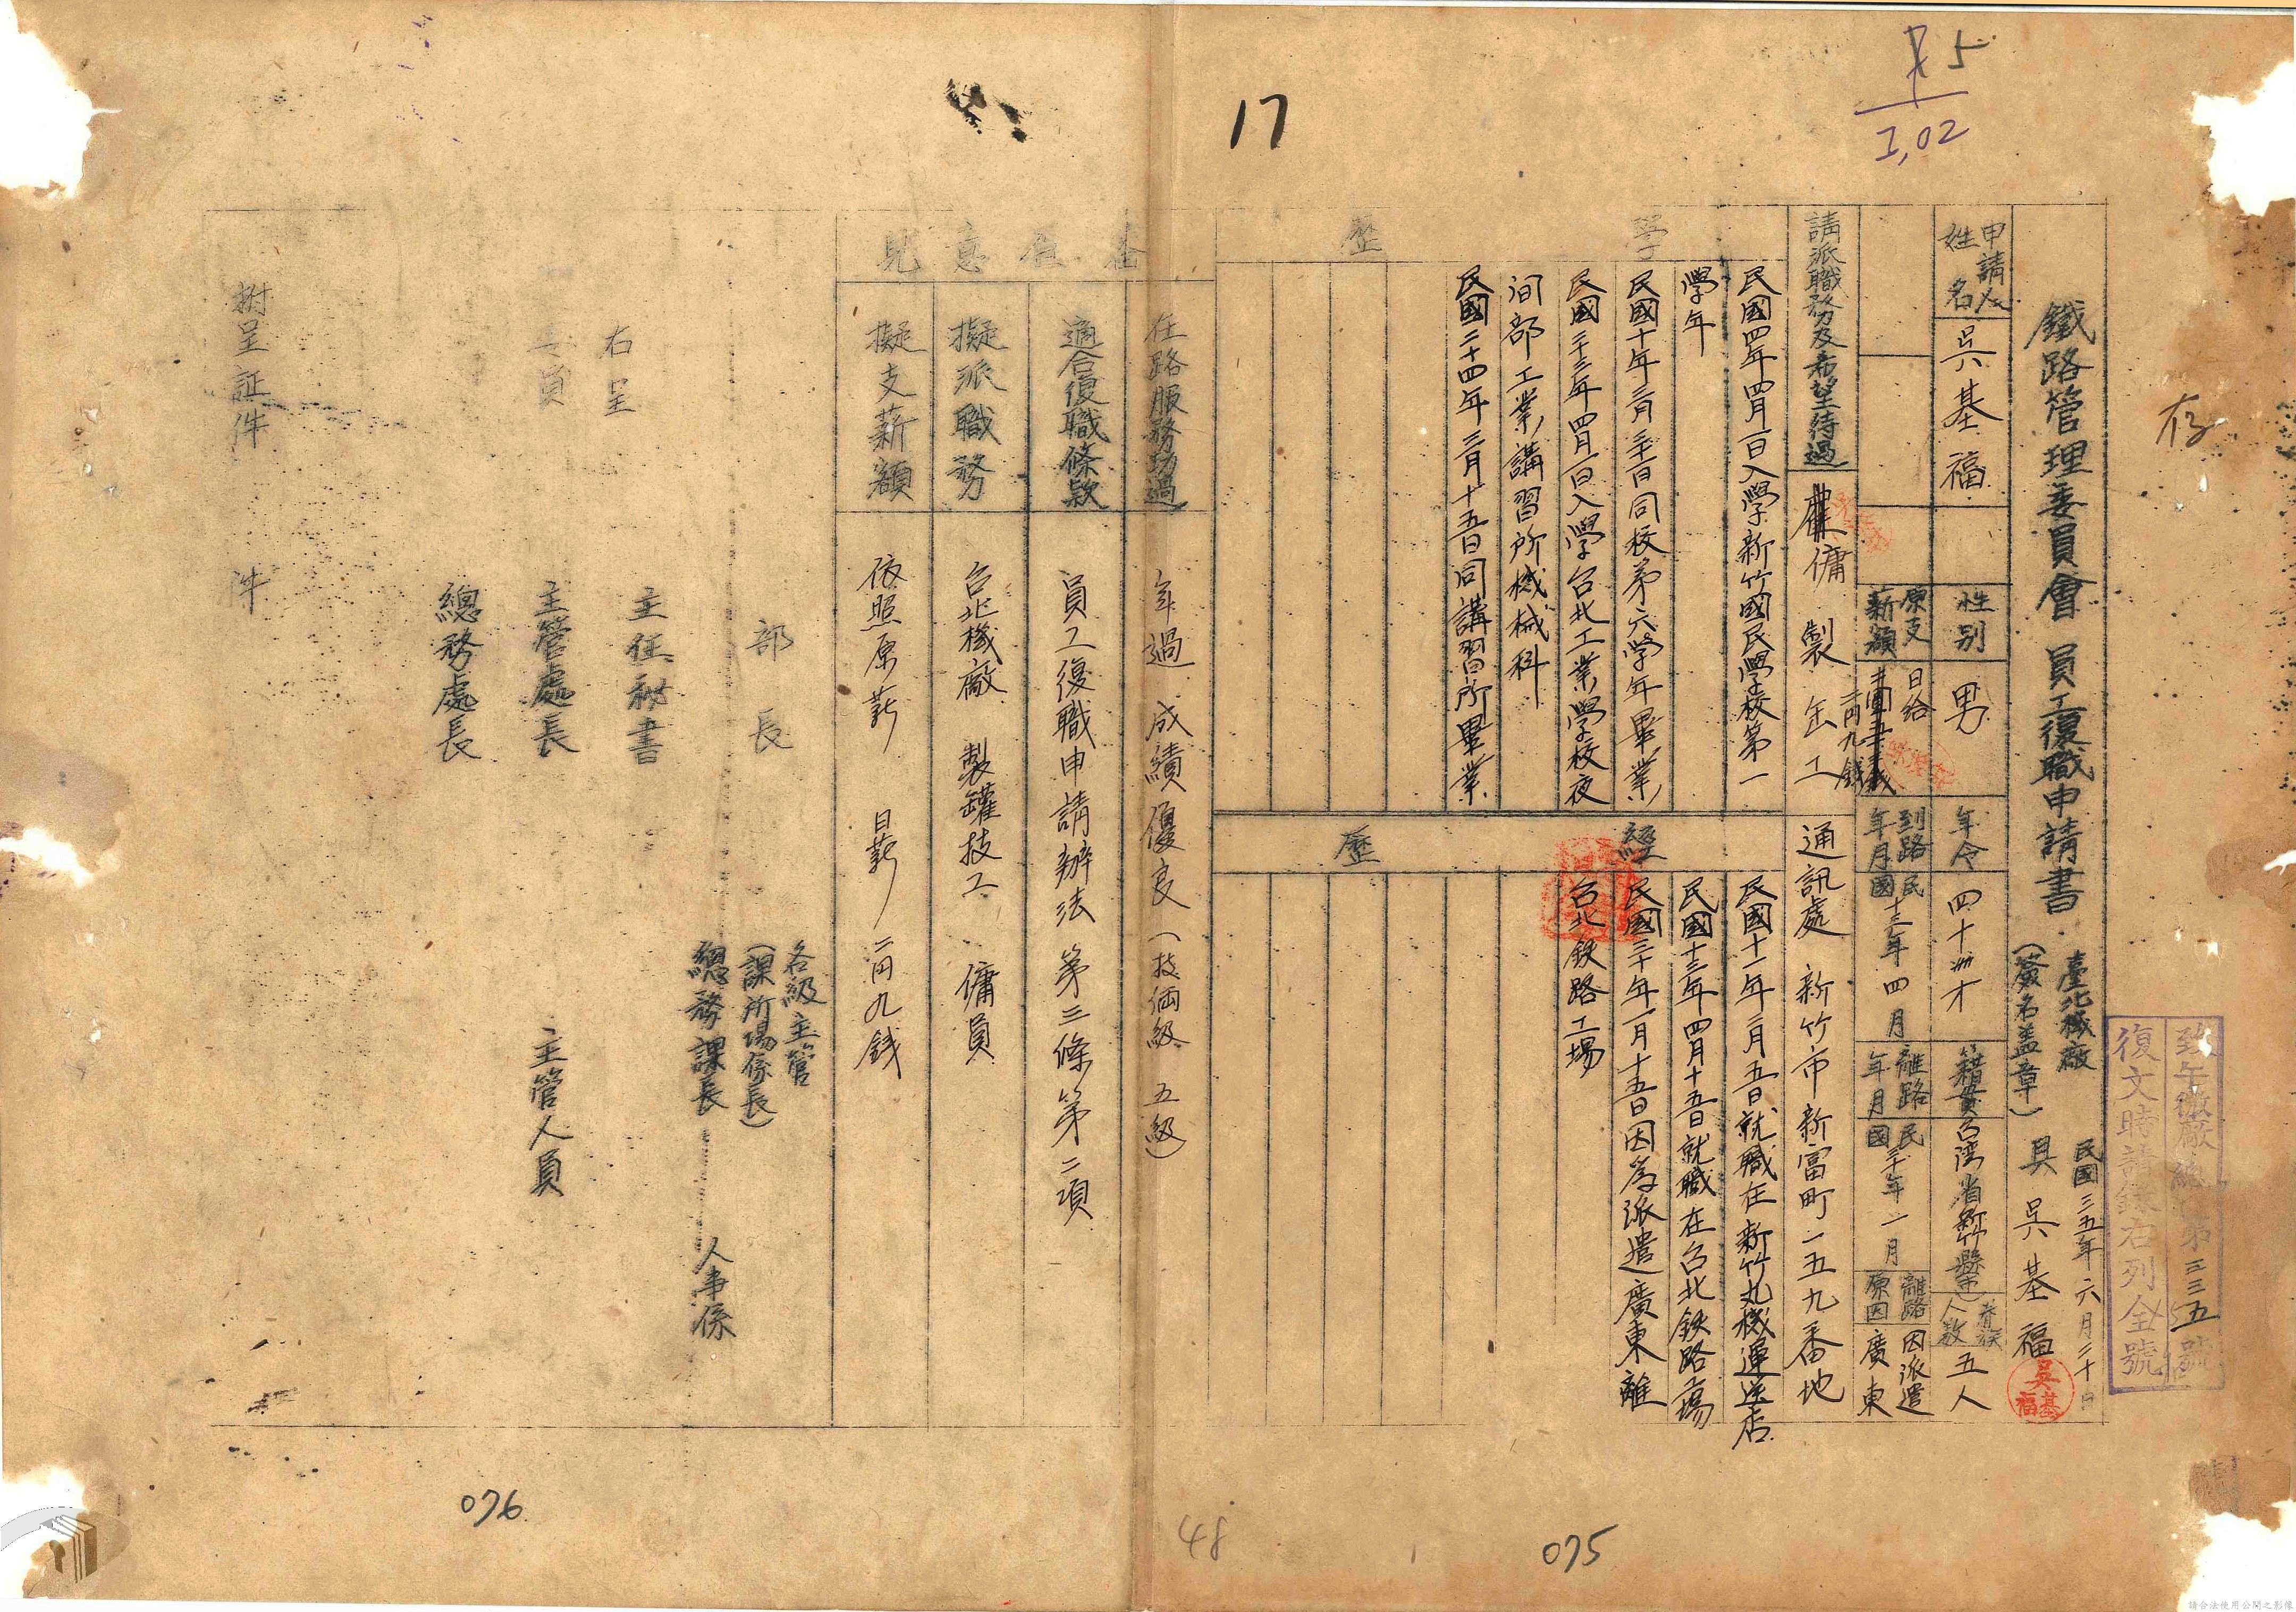 17
5
I,02
存
致午機廠總 第三三五號
復文時請錄右列全號
鐵路管理委員會 員工復職申請書
臺北機廠
(簽名盖章)
民國三五年六月二十日
具 吳基福
吳基福
申請人姓名
吳基福
性別
男
年令
四十卅才
籍貫
台湾省新竹縣
眷族人数
五人
原支薪額
日給
二円九錢
到路年月
民國十三年四月
離路年月
民國三十年一月
離路原因
因派遣廣東
請派職務及希望待遇
傭 製缶工
通訊處 新竹市新富町一五九番地
學歷
民國四年四月一日入學新竹國民學校第一
學年
民國十年三月三十日同校第六學年畢業
民國二十三年四月一日入學台北工業學校夜
间部工業講習所機械科
民國二十四年三月十五日同講習所畢業
經歷
民國十一年二月五日就職在新竹丸機運送店
民國十三年四月十五日就職在台北鉄路工場
民國三十年一月十五日因為派遣廣東離
台北鉄路工場
審查意見
在路服務功過
年過 成績優良 (技倆級 五級)
適合復職條款
員工復職申請辦法 第三條第二項
擬派職務
台北機廠 製罐技工 傭員
擬支薪額
依照原薪 日薪 二円九銭
部長
各級主管
(課所場係長)
總務課長
人事係
右呈
主任秘書
員
主管處長
主管人員
總務處長
附呈証件 件
076
48
075
請合法使用公開之影像